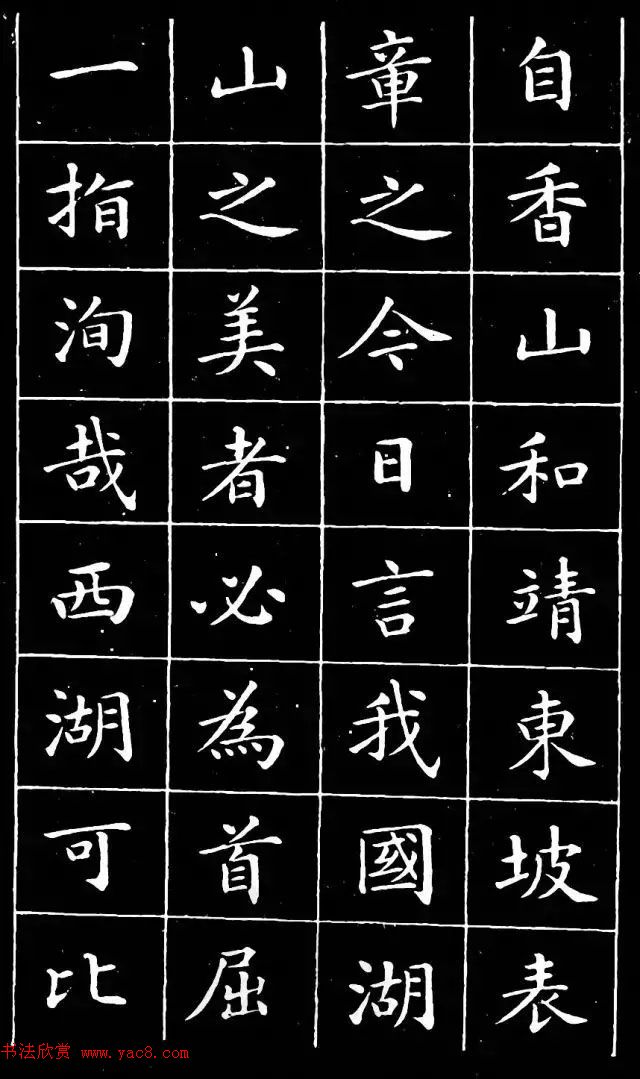 自香山和靖東坡表
章之今日言我國湖
山之美者必為首屈
一指洵哉西湖可比
书法欣赏 www.yac8.com